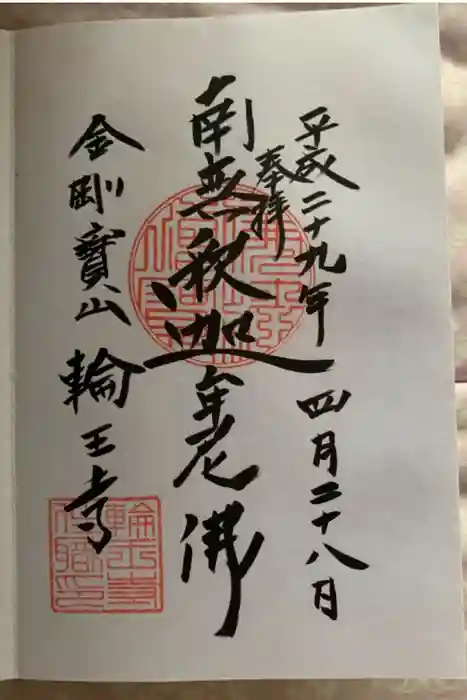 平成二十九年 四月二十八日
奉拝
南無釈迦牟尼佛
金剛寶山 輪王寺